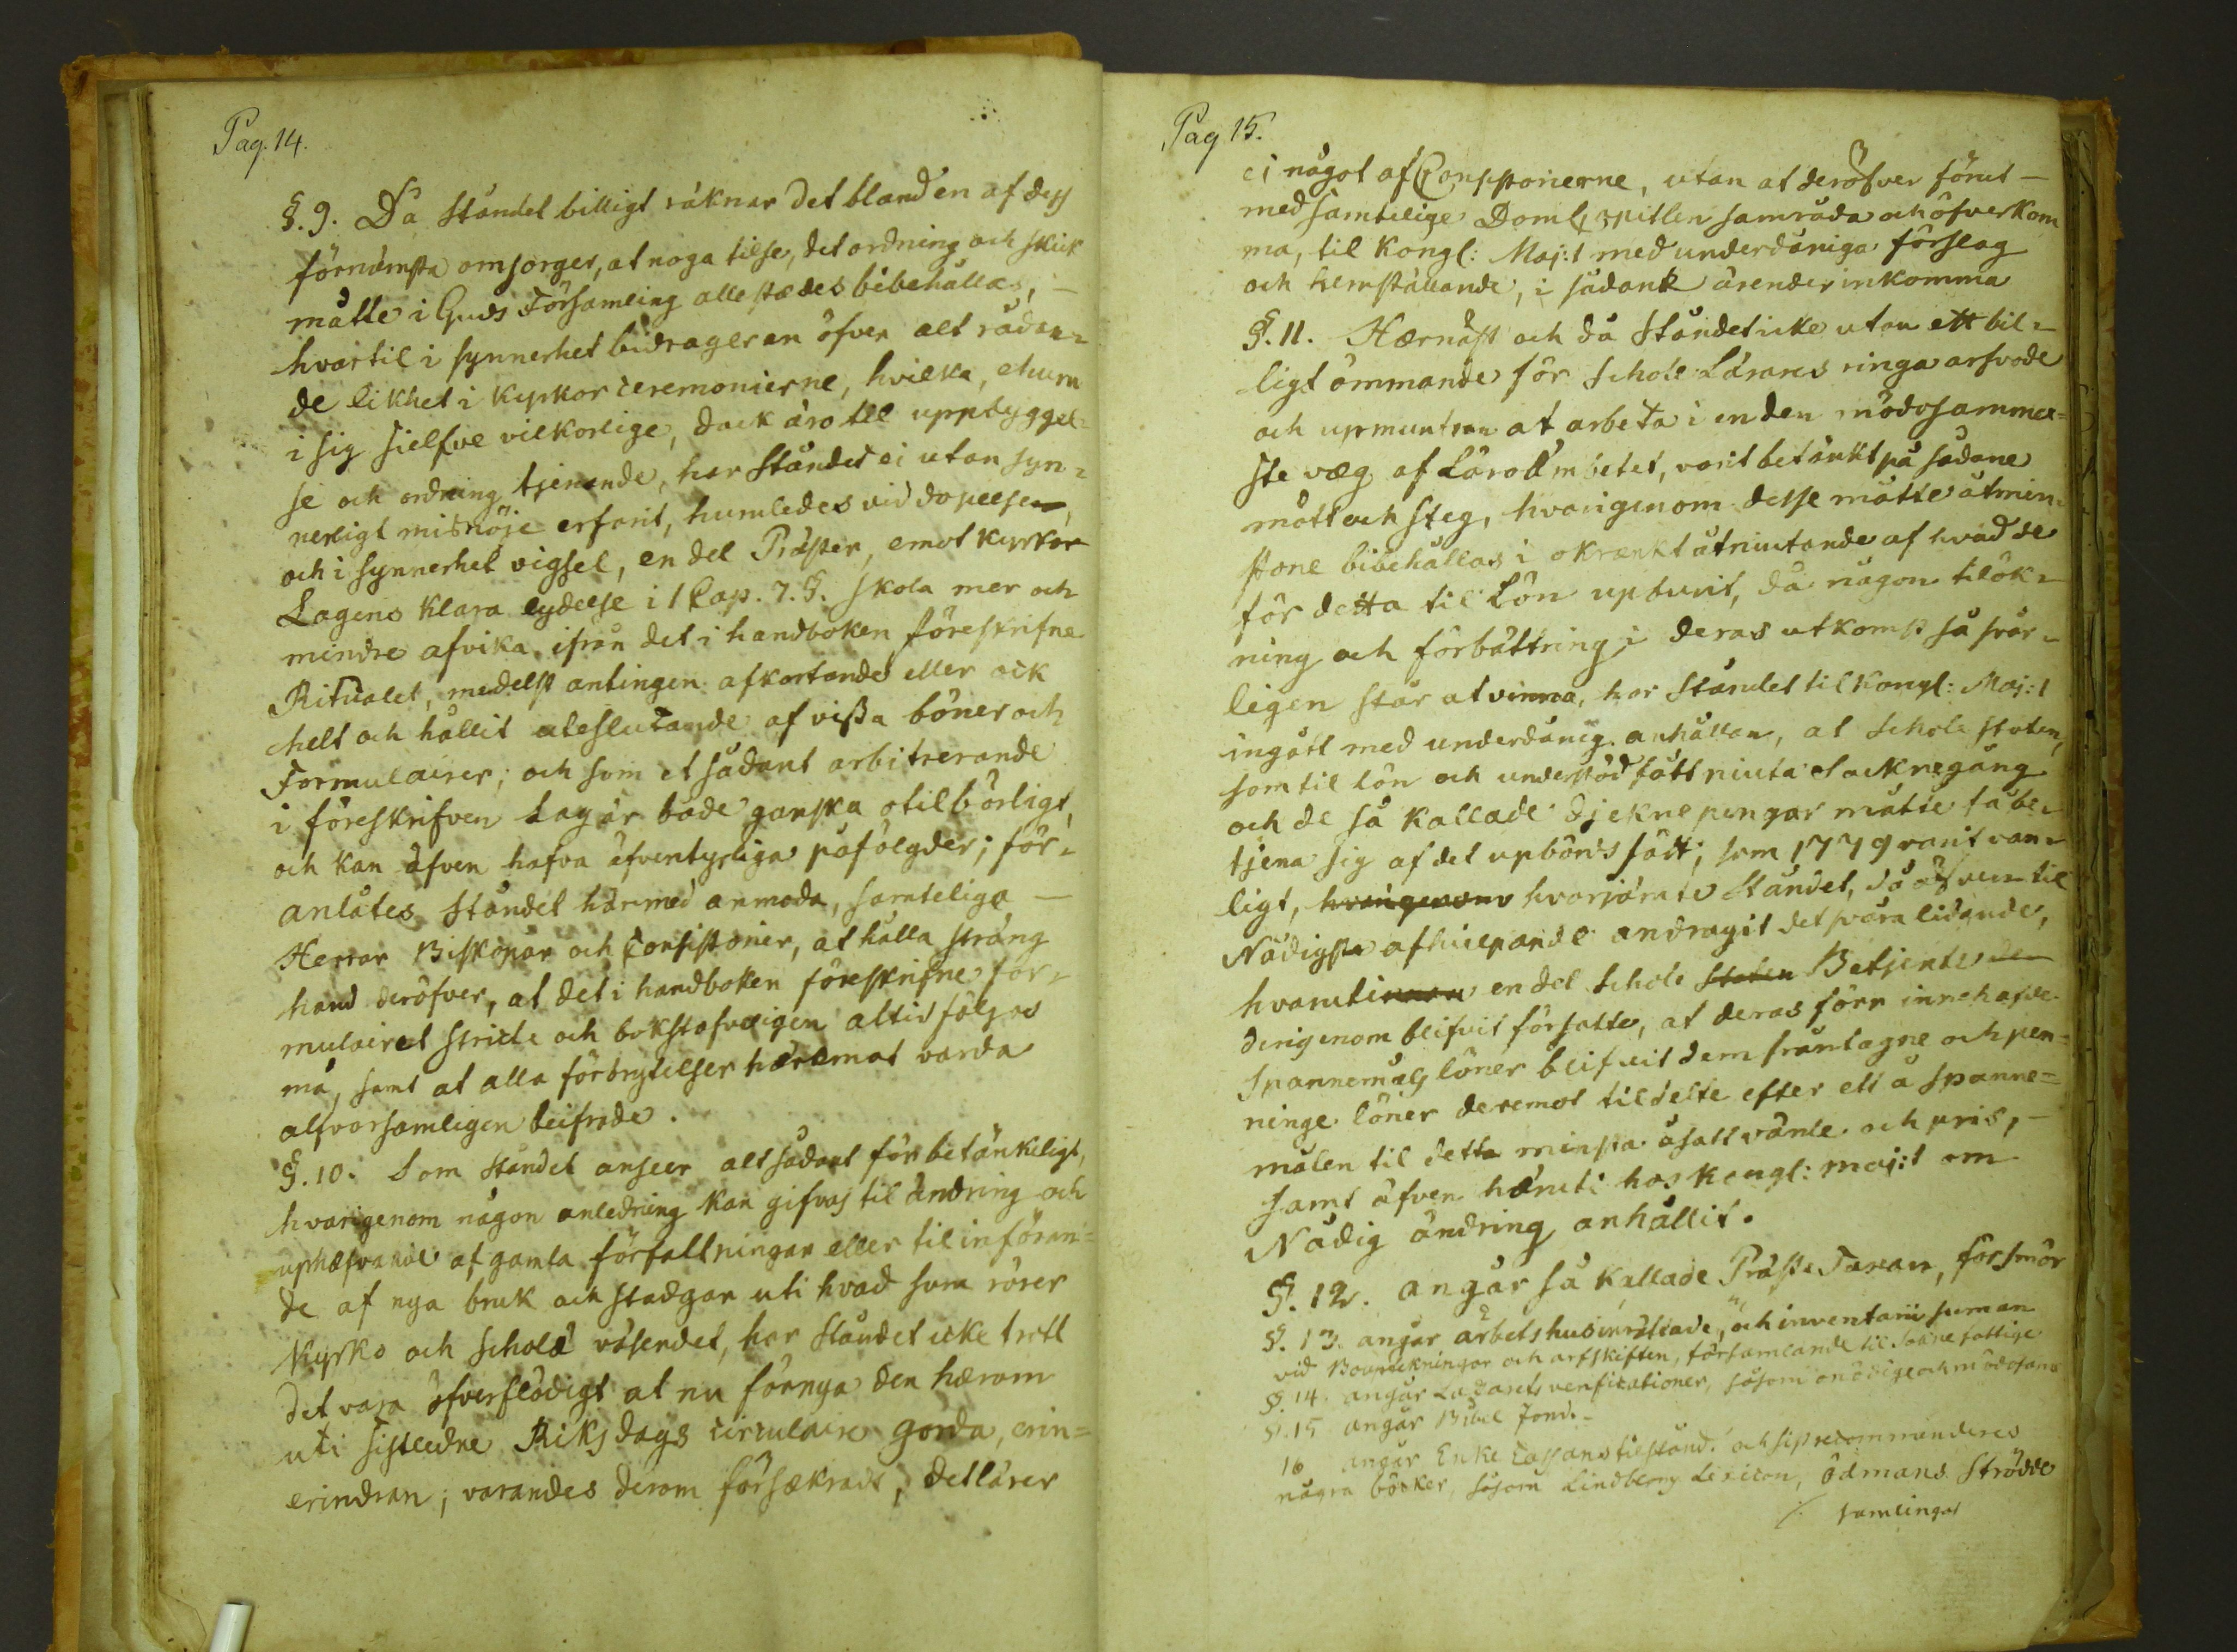 Pag. 14.
§. 9. Då Ståndet billigt räknar det bland en af dess
förnämsta omsorger, at noga tilse, det ordning och skick
måtte i Guds Församling allestædes bibehållas, —
hvartil i synnerhet bidrager en öfver alt rådan=
de likhet i kyrkor ceremonierne, hvilka, ehuru
i sig sielfve vilkorlige, dock äro til uppbyggel=
se och ordning tjenande, har Ståndet ei utan syn=
nerligt misnöje erfarit, huruledes vid dopelsen,
och i synnerhet vigsel, en del Präster, emot kyrkor
Lagens klara lydelse i 1 Cap. 7. §. skola mer och
mindre afvika ifrån det i handboken föreskrifne
Ritualet, medelst antingen afkortande eller ock
helt och hållit uteslutande af vissa böner och
Formulairer; och som et sådant arbitrerande
i föreskrifven Lag är både ganska otilbörligt,
och kan äfven hafva äfventyrliga påfölgder; för=
anlåtes Ståndet härmed anmoda, samteliga —
Herrar Biskopar och Consistorier, at hålla sträng
hand deröfver, at det i handboken föreskrifne for=
mulairet stricte och bokstafveligen altid följas
må, samt at alla förbrytelser häremot varda
alfvorsamligen beifrade.
§. 10. Som Ståndet anseer alt sådant för betänkeligt,
hvarigenom någon anledning kan gifvas til ändring och
uphæfvande af gamla författningar eller til införan=
de af nya bruk och stadgar uti hvad som rörer
Kyrko och Schole väsendet, har Ståndet icke trott
det vara öfverflödigt at nu förnya den hærom
uti sistledne Riksdags circulaire gjorda, erin=
erindran; varandes derom försækradt, det lärer
Pag 15.
ei något af Consistorierne, utan at deröfver förut —
med samtelige DomCapitlen samråda och öfverkom
ma, til Kongl: Maj:t med underdåniga förslag
och hemställande, i sådant ärender inkomma
§. 11. Hærnäst och då Ståndet icke utan ett bil=
ligt ömmande för Schole Lärares ringa arfvode
och upmuntran at arbeta i en den mödosamma=
ste væg af Läro Embetet, varit betänkt på sådane
mått och steg, hvarigenom desse måtte åtmin=
stone bibehållas i okränkt åtniutande af hvad de
för detta til Lön upburit, då någon tilök=
ning och förbättring i deras utkomst så svår=
ligen står at vinna, har Ståndet til Kongl: Maj:t
ingått med underdånig anhållan, at Schole staten,
som til lön och understöd fått niuta Sockne gång
och de så kallade Djeknepengar måtte få be=
tjena sig af det upbörds sätt, som 1779 varit van=
ligt, hvarigenom hvarjämte Ståndet, då äfven til
Nådigste afhielpande andragit det svåra lidande,
hvaruti en del Schole Staten Betjente
derigenom blifvit försatte, at deras förr innehafde
Spannemåls löner blifvit dem fråntagne och pen=
ninge löner deremot tildelte efter ett å Spanne=
målen til detta minsta åsatt värde och pris, —
samt äfven häruti hos Kongl: maj:t om
Nådig ändring anhållit.
§. 12. angår så kallade Präste Taxan, för smör
§. 13. angår arbetshusinrättade, och inventarii suman
vid Bouptekningar och arfskiften, församlande til Sockne fattige
§. 14. angår Lazarets verificationer, såsom onödige och mödosam
§. 15 angår Bibel fond. —
16 angår Enke Cassans tilstånd. och sist recommenderes
några böcker, såsom Lindbergs Lexicon, Ödmans Strödde
/. samlingar